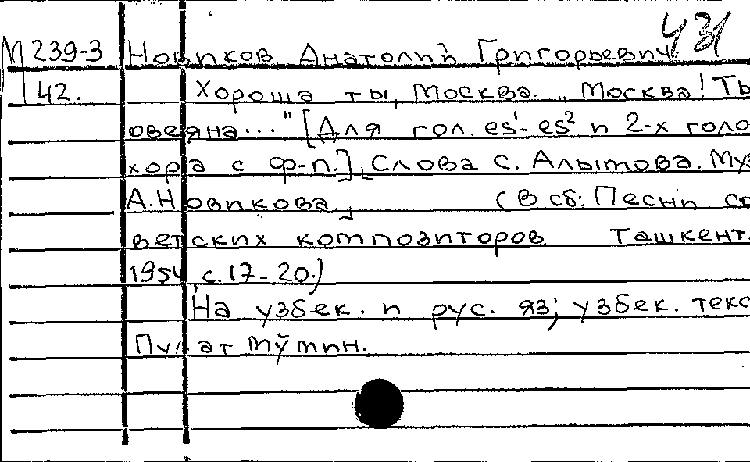 431
М 239-3 Новиков Анатолий Григорьевич
142. Хороша ты, Москва. „Москва! Ты
овеяна..." [Для гол. es¹-es² и 2-х голо
хора с ф-п.] Слова С. Алымова. Муз
А. Новикова (В сб: Песни со
ветских композиторов Ташкент.
1954, с. 17-20.)
На узбек. и рус. яз; узбек. текс
Пулат Мўмин.